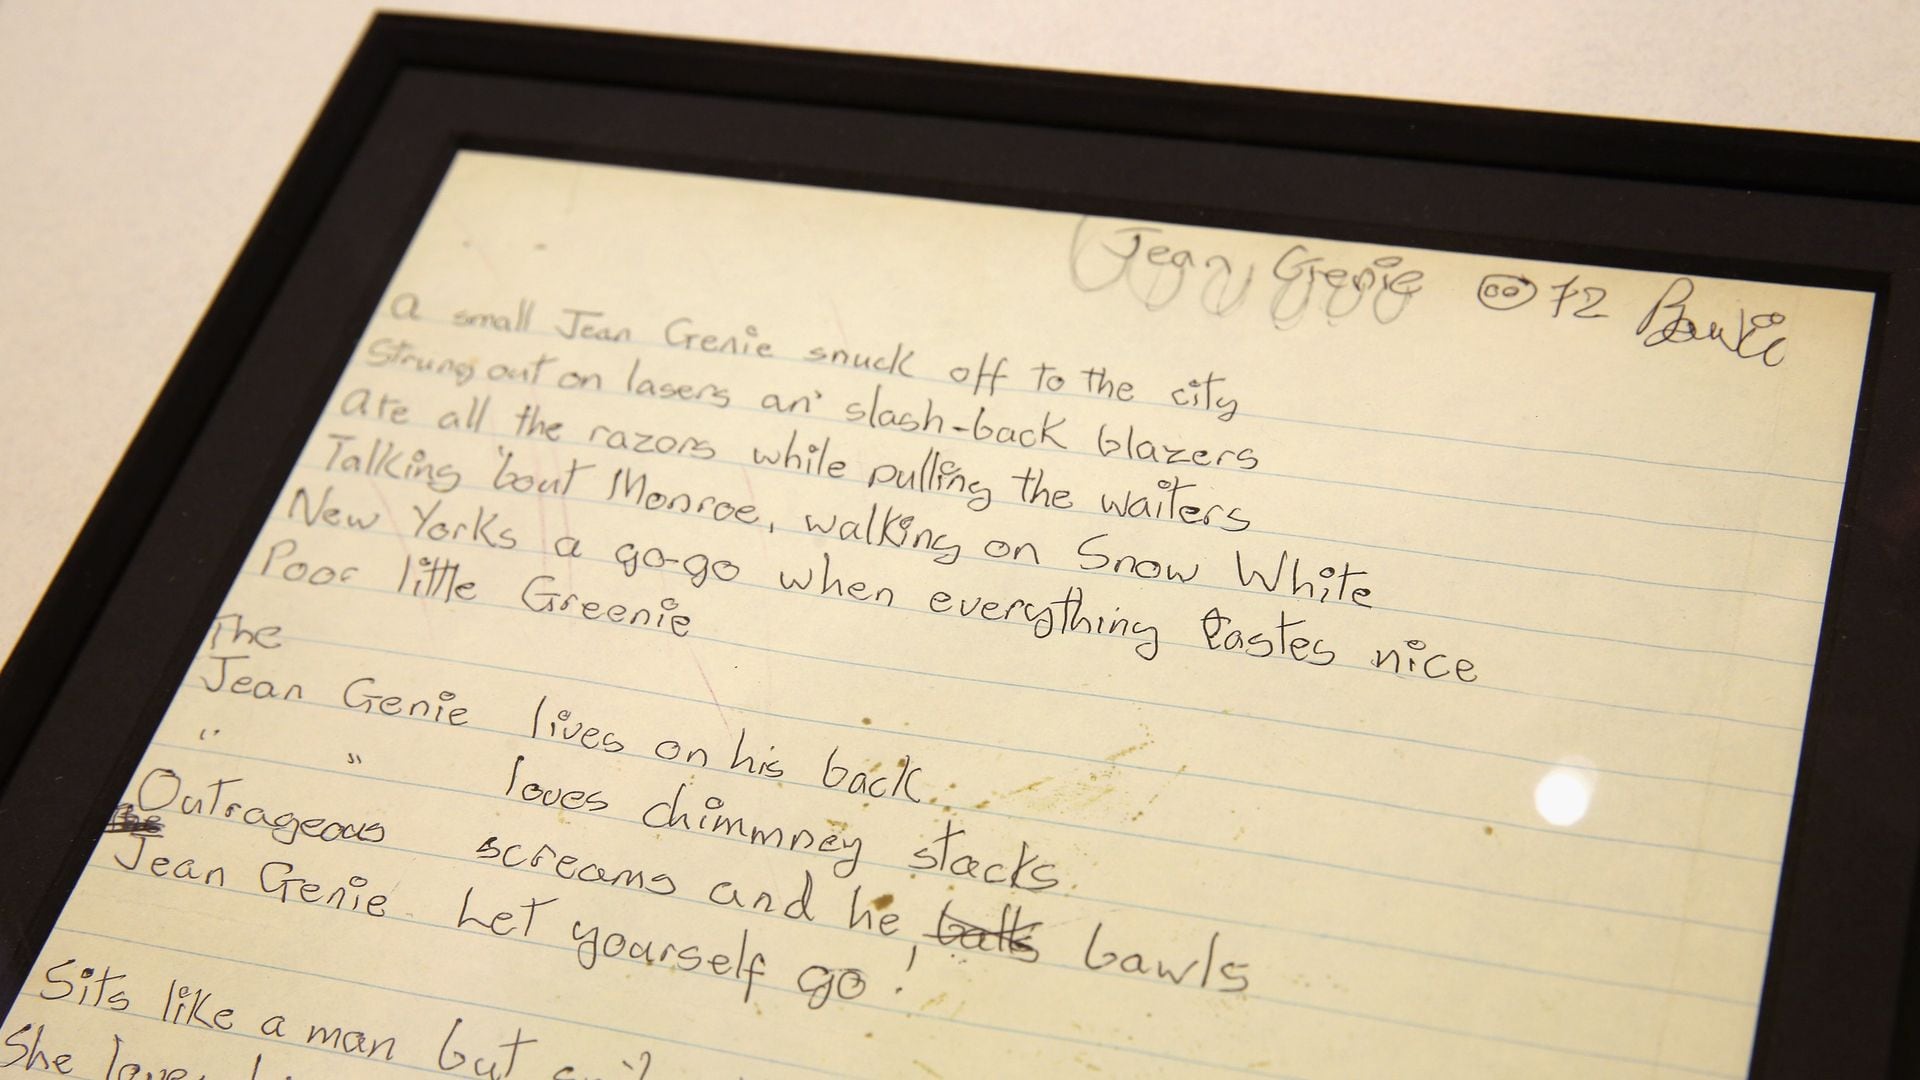 Jean Genie 72 Bowie
A small Jean Genie snuck off to the city
Strung out on lasers an' slash-back blazers
Ate all the razors while pulling the waiters
Talking 'bout Monroe, walking on Snow White
New Yorks a go-go when everything tastes nice
Poor little Greenie
The
Jean Genie lives on his back
" " loves chimmney stacks.
Outrageous screams and he balls bawls
Jean Genie Let yourself go!
Sits like a man but
She